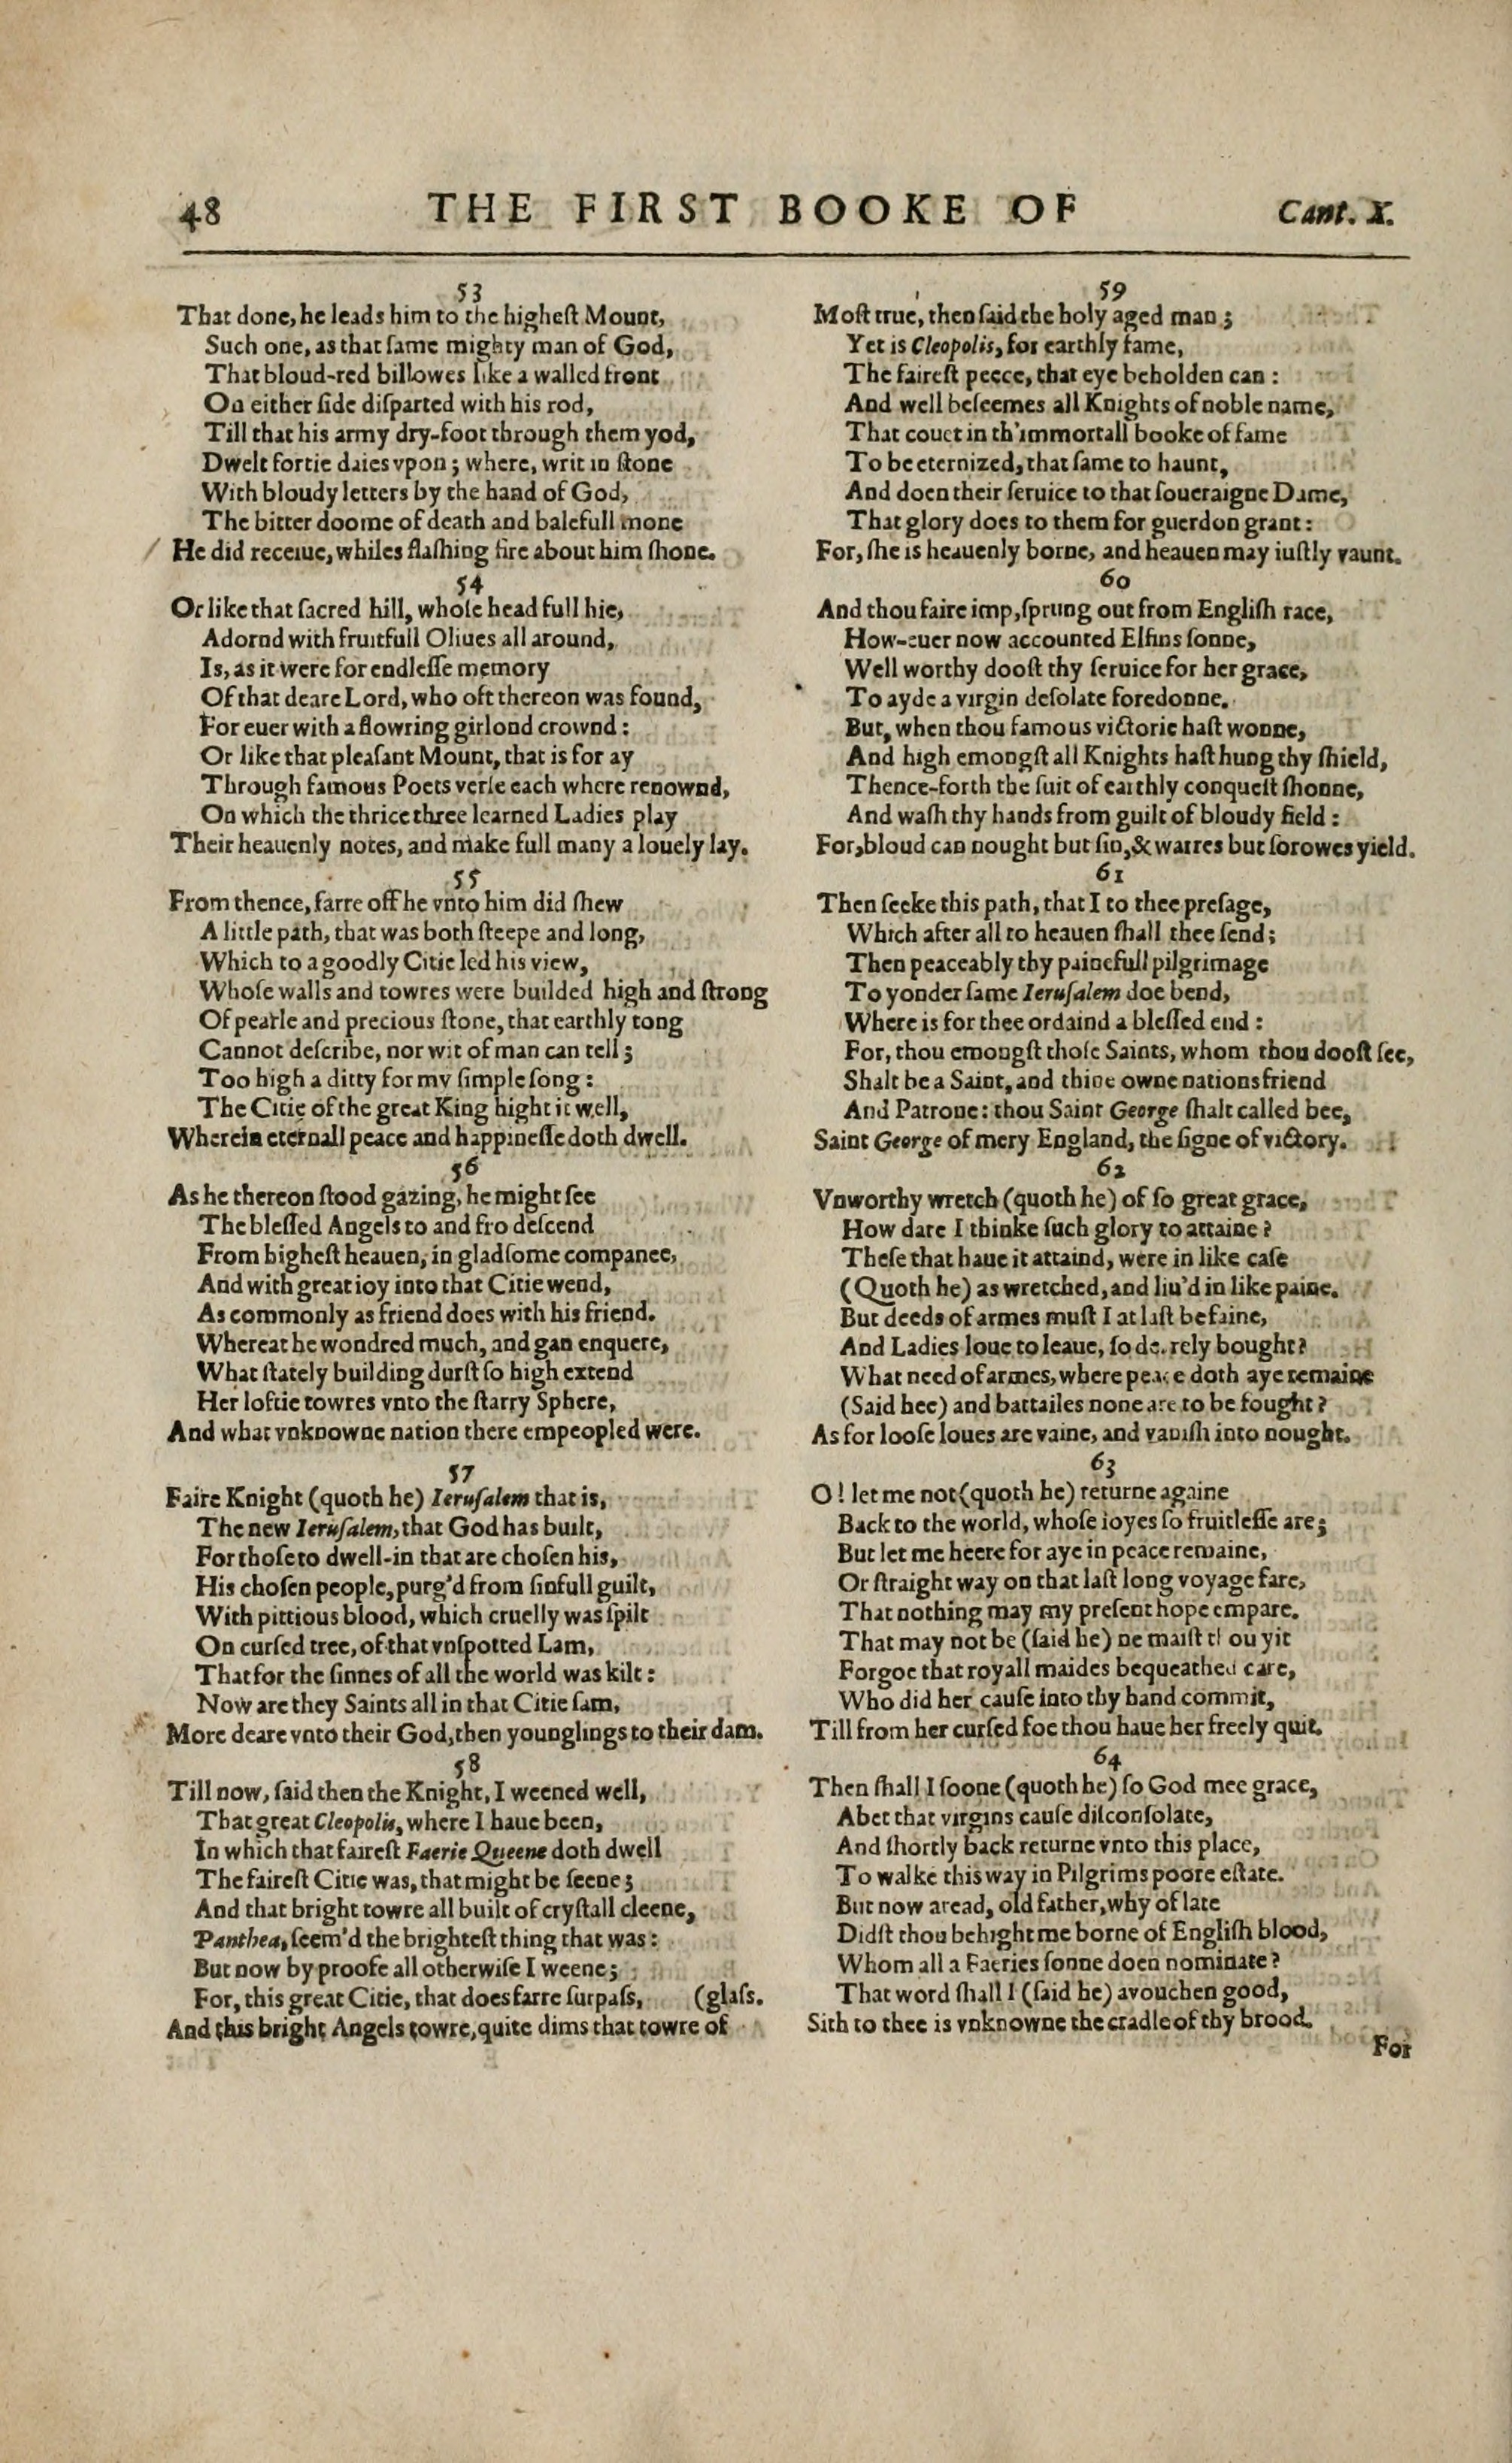 48 THE FIRST BOOKE OF Cant. X.
53
That done, he leads him to the higheſt Mount,
Such one, as that ſame mighty man of God,
That bloud-red billowes like a walled front
On either ſide diſparted with his rod,
Till that his army dry-foot through them yod,
Dwelt fortie daies vpon; where, writ in ſtone
With bloudy letters by the hand of God,
The bitter doome of death and balefull mone
He did receiue, whiles flaſhing fire about him ſhone.
54
Or like that ſacred hill, whoſe head full hie,
Adornd with fruitfull Oliues all around,
Is, as it were for endleſſe memory
Of that deare Lord, who oft thereon was found,
For euer with a flowring girlond crownd:
Or like that pleaſant Mount, that is for ay
Through famous Poets verſe each where renownd,
On which the thrice three learned Ladies play
Their heauenly notes, and make full many a louely lay.
55
From thence, farre off he vnto him did ſhew
A little path, that was both ſteepe and long,
Which to a goodly Citie led his view,
Whoſe walls and towres were builded high and ſtrong
Of pearle and precious ſtone, that earthly tong
Cannot deſcribe, nor wit of man can tell;
Too high a ditty for my ſimple ſong:
The Citie of the great King hight it well,
Wherein eternall peace and happineſſe doth dwell.
56
As he thereon ſtood gazing, he might ſee
The bleſſed Angels to and fro deſcend
From higheſt heauen, in gladſome companee,
And with great ioy into that Citie wend,
As commonly as friend does with his friend.
Whereat he wondred much, and gan enquere,
What ſtately building durſt ſo high extend
Her loftie towres vnto the ſtarry Sphere,
And what vnknowne nation there empeopled were.
57
Faire Knight (quoth he) Ieruſalem that is,
The new Ieruſalem, that God has built,
For thoſe to dwell-in that are choſen his,
His choſen people, purg'd from ſinfull guilt,
With pittious blood, which cruelly was ſpilt
On curſed tree, of that vnſpotted Lam,
That for the ſinnes of all the world was kilt:
Now are they Saints all in that Citie ſam,
More deare vnto their God, then younglings to their dam.
58
Till now, ſaid then the Knight, I weened well,
That great Cleopolis, where I haue been,
In which that faireſt Faerie Queene doth dwell
The faireſt Citie was, that might be ſeene;
And that bright towre all built of cryſtall cleene,
Panthea, ſeem'd the brighteſt thing that was:
But now by proofe all otherwiſe I weene;
For, this great Citie, that does farre ſurpaſs, (glaſs.
And this bright Angels towre, quite dims that towre of
59
Moſt true, then ſaid the holy aged man;
Yet is Cleopolis, for earthly fame,
The faireſt peece, that eye beholden can:
And well beſeemes all Knights of noble name,
That couet in th'immortall booke of fame
To be eternized, that ſame to haunt,
And doen their ſeruice to that ſoueraigne Dame,
That glory does to them for guerdon grant:
For, ſhe is heauenly borne, and heauen may iuſtly vaunt.
60
And thou faire imp, ſprung out from Engliſh race,
How-euer now accounted Elfins ſonne,
Well worthy dooſt thy ſeruice for her grace,
To ayde a virgin deſolate foredonne.
But, when thou famous victorie haſt wonne,
And high emongſt all Knights haſt hung thy ſhield,
Thence-forth the ſuit of earthly conqueſt ſhonne,
And waſh thy hands from guilt of bloudy field:
For, bloud can nought but ſin, & warres but ſorowes yield.
61
Then ſeeke this path, that I to thee preſage,
Which after all to heauen ſhall thee ſend;
Then peaceably thy painefull pilgrimage
To yonder ſame Ieruſalem doe bend,
Where is for thee ordaind a bleſſed end:
For, thou emongſt thoſe Saints, whom thou dooſt ſee,
Shalt be a Saint, and thine owne nations friend
And Patrone: thou Saint George ſhalt called bee,
Saint George of mery England, the ſigne of victory.
62
Vnworthy wretch (quoth he) of ſo great grace,
How dare I thinke ſuch glory to attaine?
Theſe that haue it attaind, were in like caſe
(Quoth he) as wretched, and liu'd in like paine.
But deeds of armes muſt I at laſt be faine,
And Ladies loue to leaue, ſo dearely bought?
What need of armes, where peace doth aye remaine
(Said hee) and battailes none are to be fought?
As for looſe loues are vaine, and vaniſh into nought.
63
O! let me not (quoth he) returne againe
Back to the world, whoſe ioyes ſo fruitleſſe are;
But let me heere for aye in peace remaine,
Or ſtraight way on that laſt long voyage fare,
That nothing may my preſent hope empare.
That may not be (ſaid he) ne maiſt thou yit
Forgoe that royall maides bequeathed care,
Who did her cauſe into thy hand commit,
Till from her curſed foe thou haue her freely quit.
64
Then ſhall I ſoone (quoth he) ſo God mee grace,
Abet that virgins cauſe diſconſolate,
And ſhortly back returne vnto this place,
To walke this way in Pilgrims poore eſtate.
But now aread, old father, why of late
Didſt thou behight me borne of Engliſh blood,
Whom all a Faeries ſonne doen nominate?
That word ſhall I (ſaid he) avouchen good,
Sith to thee is vnknowne the cradle of thy brood.
For